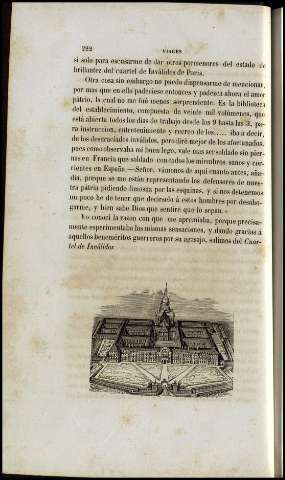 222 VIAGES
si solo para escusarme de dar otros pormenores del estado
brillante del cuartel de Inválidos de Paris.
Otra cosa sin embargo no puedo dispensarme de mencionar,
por mas que en ella padeciese entonces y padezca ahora el amor
patrio, la cual no me fué menos sorprendente. Es la biblioteca
del establecimiento, compuesta de veinte mil volúmenes, que
está abierta todos los dias de trabajo desde las 9 hasta las 3,
para instruccion, entretenimiento y recreo de los..... iba a decir,
de los desgraciados inválidos, pero diré mejor de los afortunados,
pues como observaba mi buen lego, vale mas ser soldado sin pier-
nas en Francia que soldado con todos los miembros sanos y cor-
rientes en España.—Señor, vámonos de aqui cuanto antes, aña-
dia, porque se me estan representando los defensores de nues-
tra patria pidiendo limosna por las esquinas, y si nos detenemos
un poco he de tener que decirselo á estos hombres para desaho-
garme, y bien sabe Dios que sentiré que lo sepan.»
Yo conocí la razon con que me apremiaba, porque precisa-
mente experimentaba las mismas sensaciones, y dando gracias á
aquellos beneméritos guerreros por su agasajo, salimos del Cuar-
tel de Inválidos